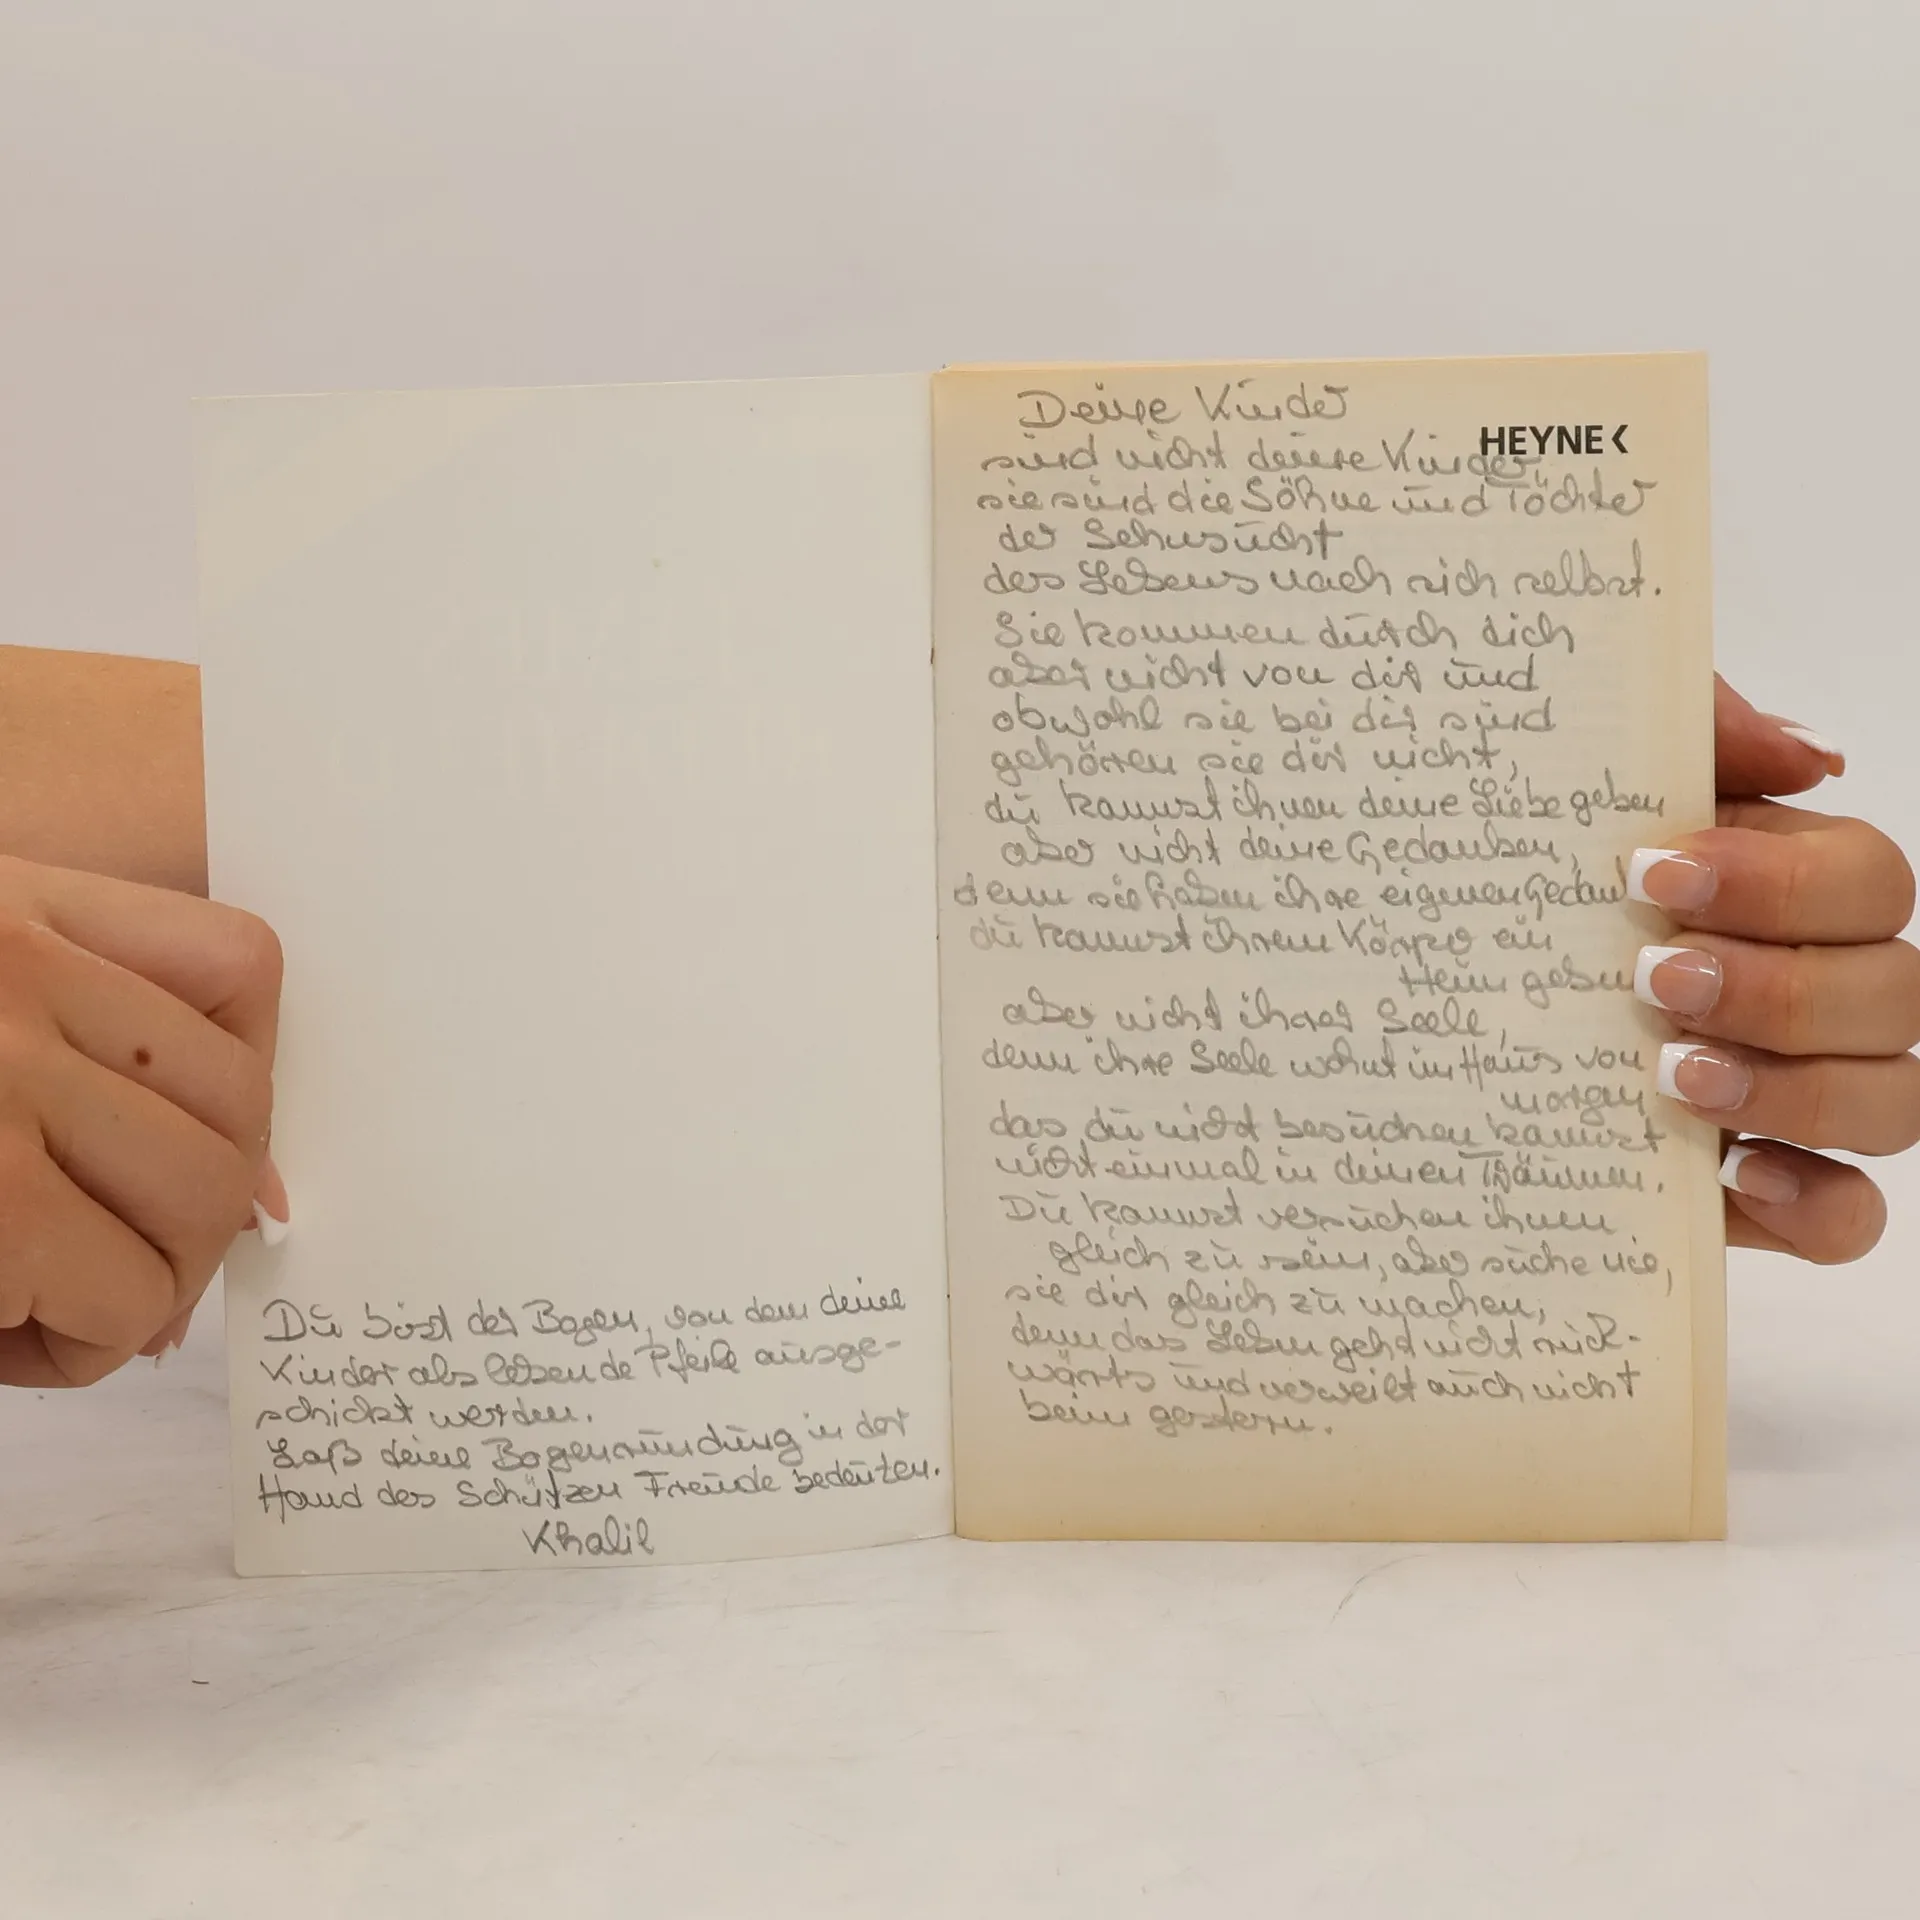 Du bist der Bogen, von dem deine
Kinder als lebende Pfeile ausge-
schickt werden.
Laß deine Bogenrundung in der
Hand des Schützen Freude bedeuten.
Khalil
Deine Kinder
HEYNE<
sind nicht deine Kinder,
sie sind die Söhne und Töchter
der Sehnsucht
des Lebens nach sich selbst.
Sie kommen durch dich
aber nicht von dir und
obwohl sie bei dir sind
gehören sie dir nicht,
du kannst ihnen deine Liebe geben
aber nicht deine Gedanken,
denn sie haben ihre eigenen Gedank
du kannst ihrem Körper ein
Heim geben
aber nicht ihrer Seele,
denn ihre Seele wohnt im Haus von
morgen
das du nicht besuchen kannst
nicht einmal in deinen Träumen.
Du kannst versuchen ihnen
gleich zu sein, aber suche nie,
sie dir gleich zu machen,
denn das Leben geht nicht rück-
wärts und verweilt auch nicht
beim gestern.